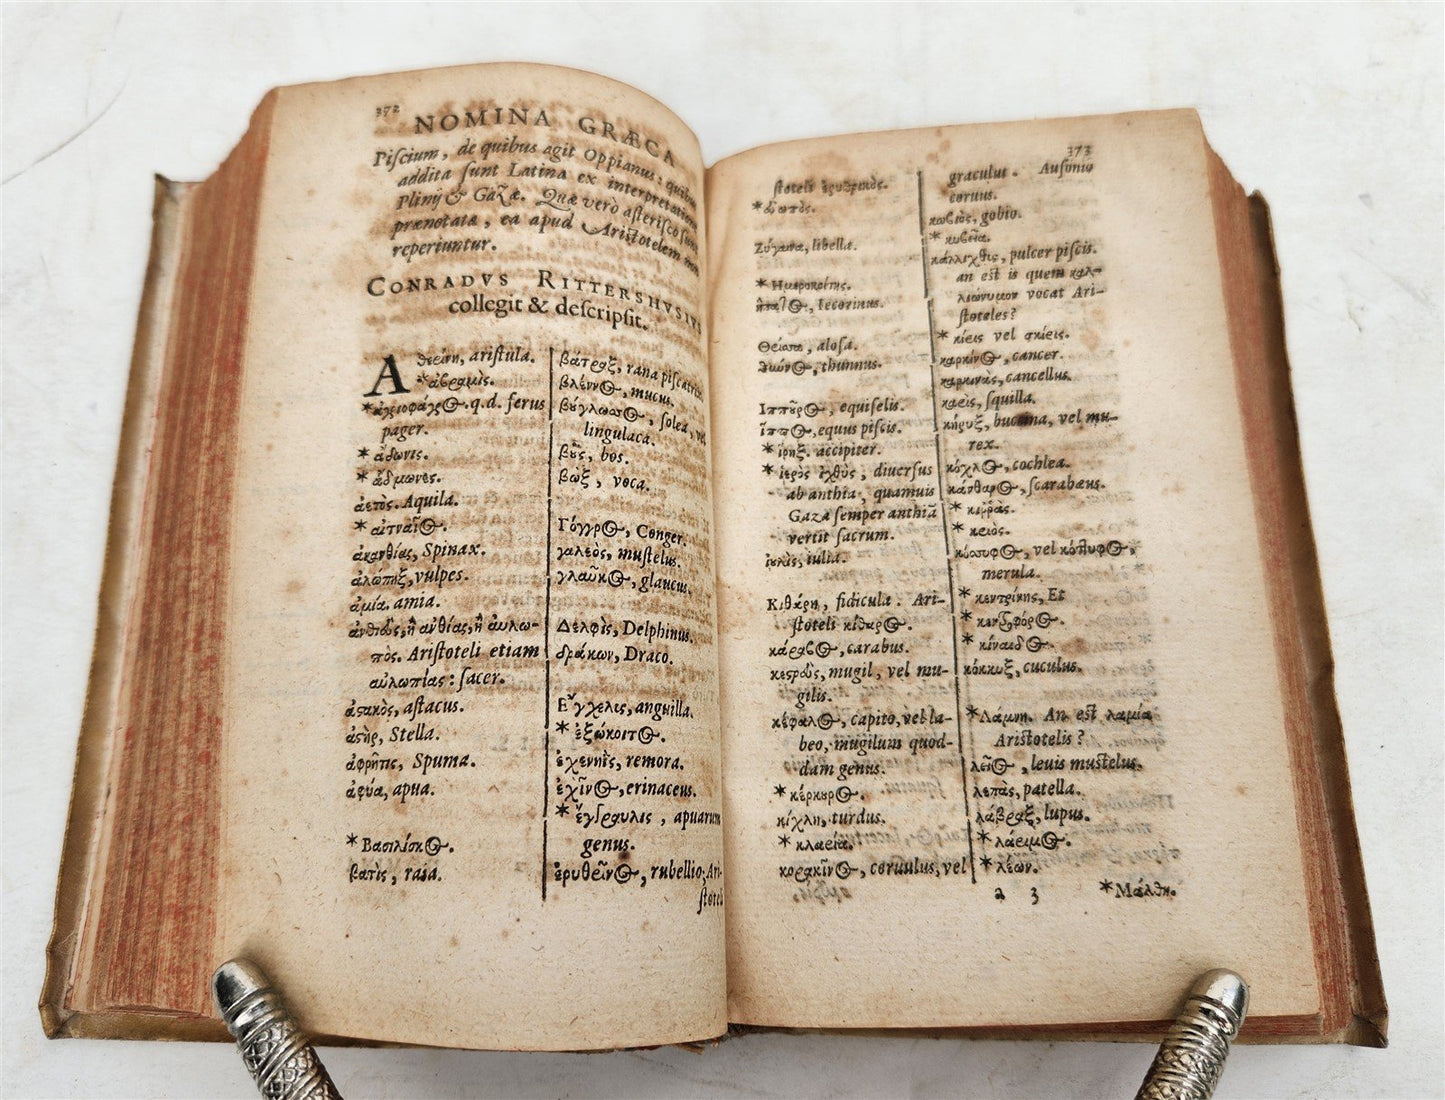 372
NOMINA GRÆCA
Piſcium, de quibus agit Oppianus: quibus
addita ſunt Latina ex interpretatione
Plinij & Gazæ. Quæ vero aſteriſco ſunt
prænotata, ea apud Ariſtotelem non
reperiuntur.
CONRADVS RITTERSHVSIVS
collegit & deſcripſit.
ariſtula.
*ἀβραμὶς.
q.d. ferus
pager.
* ἄδωνις.
* ἄδμωνες.
ἀετὸς. Aquila.
* αἰτναῖος.
ἀκανθίας, Spinax.
ἀλώπηξ, vulpes.
ἀμία. amia.
ἀνθίας, ἢ αὐλω-
πὸς. Ariſtoteli etiam
αὐλωπίας: ſacer.
ἀστακὸς, aſtacus.
ἀστὴρ, Stella.
ἀφρῆτις, Spuma.
ἀφύα, apua.
* Βασιλίσκος.
βατὶς, raia.
βάτραξ, rana piſcatrix.
βλέννος, mucus.
βύγλωσσος, ſolea, vel
lingulaca.
βῦς, bos.
βῶξ, voca.
Γόγγρος, Conger.
γαλεὸς, muſtelus.
γλαῦκος, glaucus.
Δελφὶς, Delphinus.
δράκων, Draco.
Ἔγχελις, anguilla.
* ἐξώκοιτος.
ἐχενηῒς, remora.
ἐχῖνος, erinaceus.
* ἔγγραυλις, apuarum
genus.
ἐρυθρῖνος, rubellio, Ari-
ſtoteli
373
ſtoteli ἐρυθρινὸς.
*
Ζύγαινα, libella.
* Ἡμεροκοίτης.
ἥπατος, Iecorinus.
aloſa.
θύννος, thunnus.
Ἱππῦρος, equiſelis.
ἵππος, equus piſcis.
* ἴρηξ. accipiter.
* ἱερὸς ἰχθὺς, diuerſus
ab anthia, quamuis
Gaza ſemper anthiã
vertit ſacrum.
ἰυλὶς, iulia.
Κιθάρη, fidicula. Ari-
ſtoteli κίθαρος.
κάραβος, carabus.
κεστρεὺς, mugil, vel mu-
gilis.
κέφαλος, capito, vel la-
beo, mugilum quod-
dam genus.
* κέρκυρος.
κίχλη, turdus.
* κλαεία.
κορακῖνος, coruulus, vel
graculus. Auſonio
coruus.
κωβιὸς, gobio.
* κυβεία.
κάλλιχθις, pulcer piſcis.
an eſt is quem καλ-
λιώνυμον vocat Ari-
ſtoteles?
* κίεις vel σκίεις.
καρκίνος, cancer.
καρκινὰς, cancellus.
καρὶς, ſquilla.
κήρυξ, buccina, vel mu-
rex.
κόχλος, cochlea.
κάνθαρος, ſcarabæus.
* κιῤῥὰς.
*
κόσσυφος, vel κόττυφος,
merula.
* κεντρίνης, Et
*
* κίναιδος.
κόκκυξ, cuculus.
* Λάμνη. An eſt λαμία
Ariſtotelis?
λεῖος, leuis muſtelus.
λεπὰς, patella.
λάβραξ, lupus.
* λάριμος.
* λέων.
a 3
* Μάλθη.